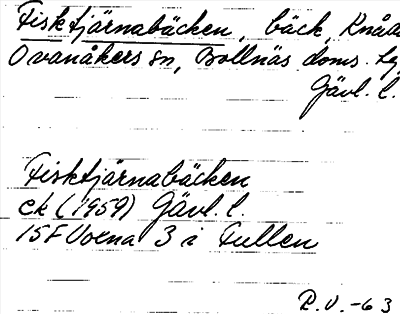 Fisktjärnabäcken, bäck, Knåda
Ovanåkers sn, Bollnäs doms. sg
Gävl. l.
Fisktjärnabäcken
ek (1959) Gävl. l.
15F Voxna 3 i Fullen
R.V.-63